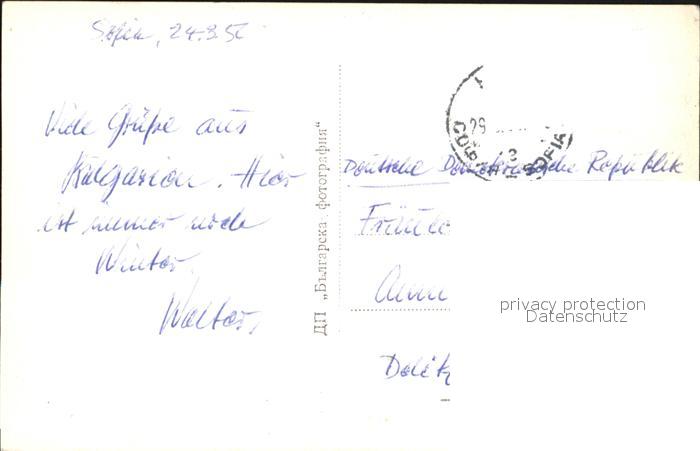 Sofia, 24.3.56
Viele Grüße aus
Bulgarien. Hier
ist immer noch
Winter.
Walter.
ДП „Българска фотография“
29
SOFIA
Deutsche Demokratische Republik
Fräulein
Anne
privacy protection
Datenschutz